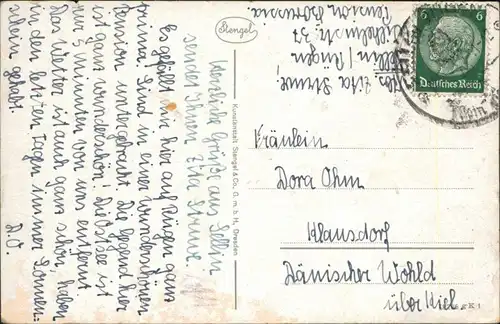 Herzliche Grüße aus Sellin
sendet Ihnen Zita Strunz.
Es gefällt mir hier auf Rügen ganz
prima. Sind in einer wunderschönen
Pension untergebracht. Die Gegend hier
ist ganz wunderschön! Die Ostsee ist
nur 5 Minuten von uns entfernt
Das Wetter ist auch ganz schön, haben
in den letzten Tagen immer Sonnen-
schein gehabt.
D.O.
Stengel
Kunstanstalt Stengel & Co. G. m. b. H., Dresden
Abs. Zita Strunz,
Sellin / Rügen
Wilhelmstr. 37
Pension Borussia.
6 6
Deutsches Reich
Fräulein
Dora Ohm
Klausdorf
Dänischer Wohld
über Kiel.